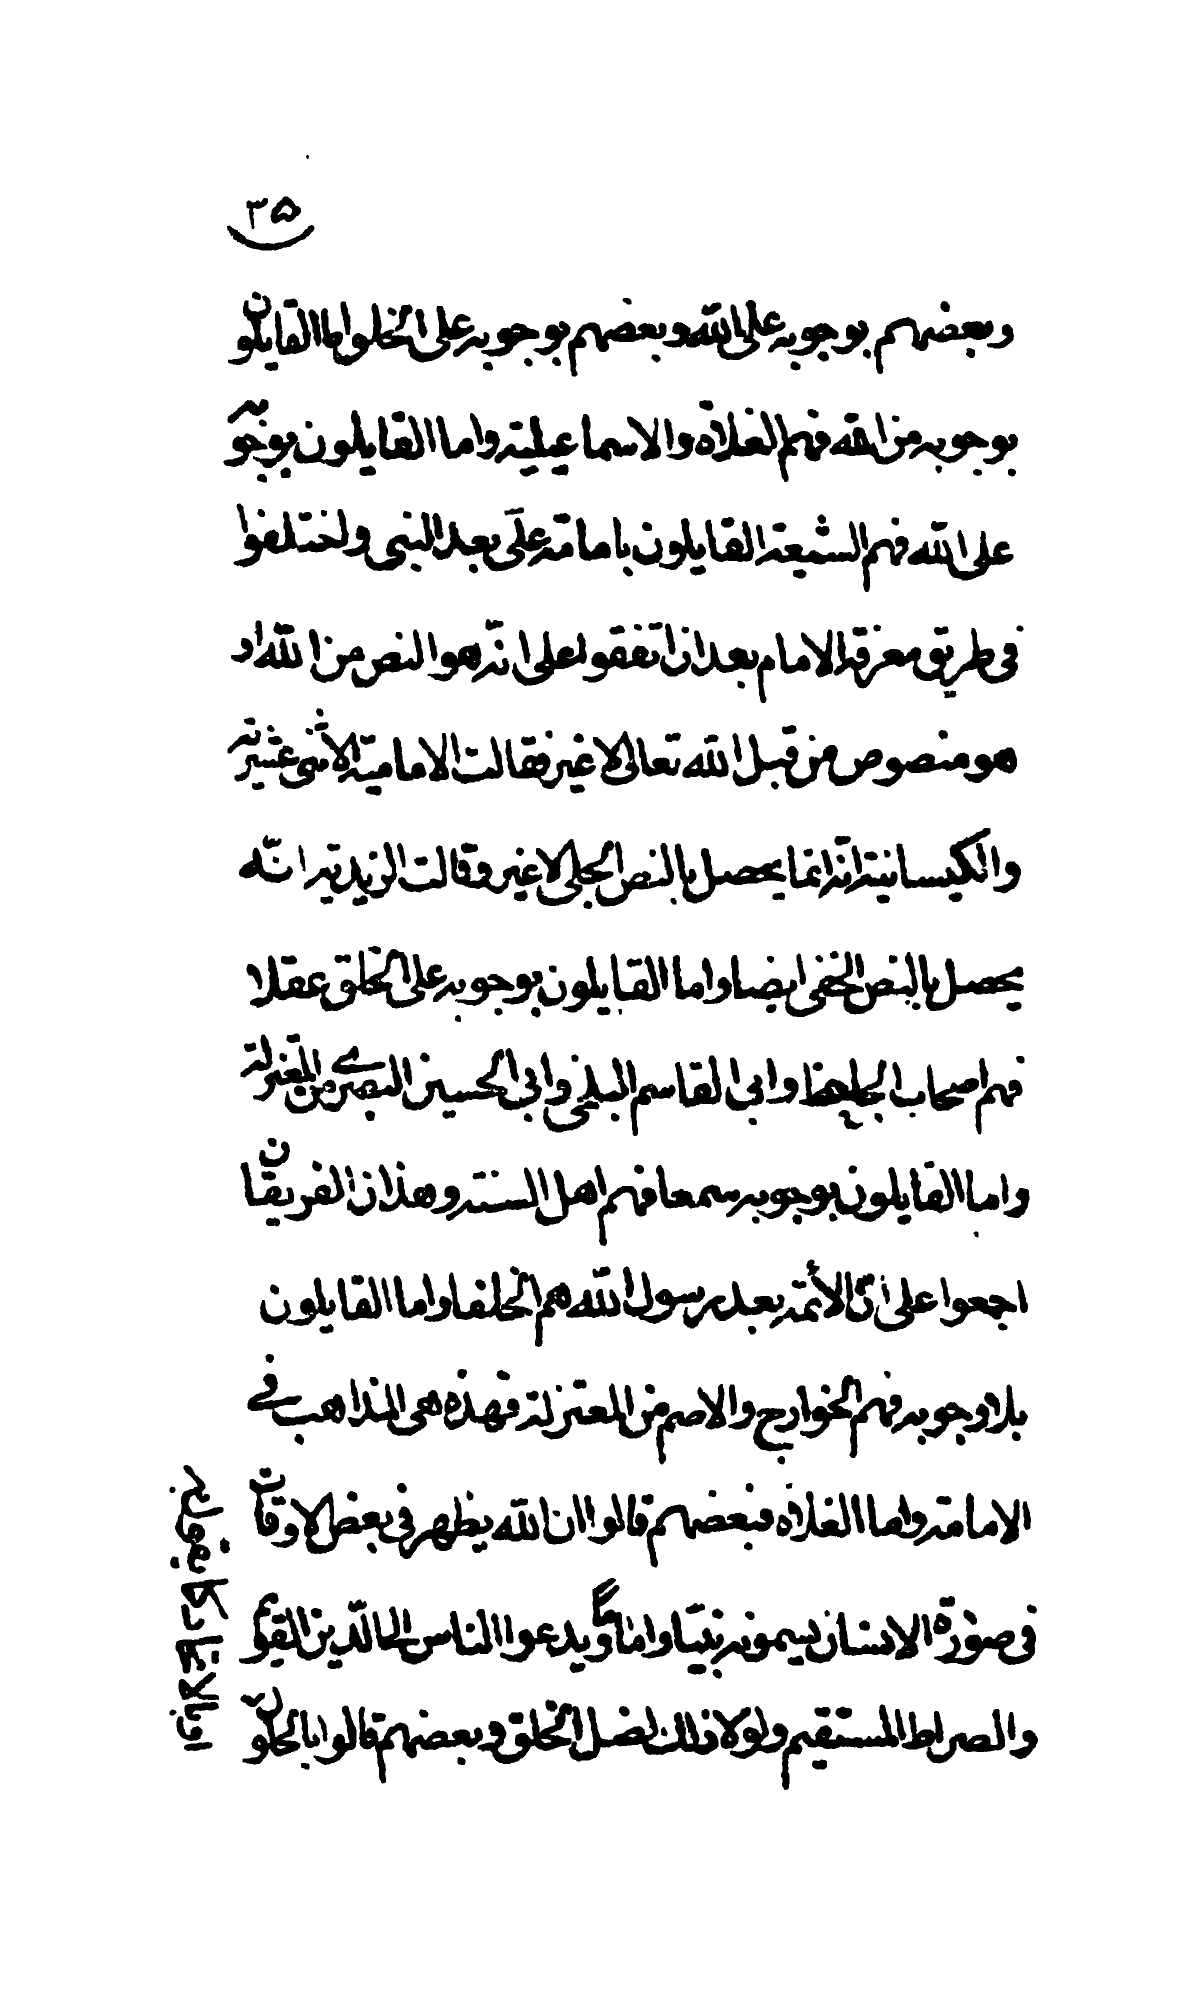 ٣۵
وبعضهم بوجوبه على الله وبعضهم بوجوبه على الخلق واما القايلون
بوجوبه من الله فهم الغلاة والاسماعيلية واما القايلون بوجوبه
على الله فهم الشيعة القايلون بامامة على بعد النبى واختلفوا
فى طريق معرفة الامام بعد ان اتفقوا على انه هو النص من الله او
هو منصوص من قبل الله تعالى لا غير فقالت الامامية الاثنى عشرية
والكيسانية انه انما يحصل بالنص الجلى لا غير وقالت الزيدية انه
يحصل بالنص الخفى ايضا واما القايلون بوجوبه على الخلق عقلا
فهم اصحاب الجاحظ وابى القاسم البلخى وابى الحسين البصرى من المعتزلة
واما القايلون بوجوبه سمعا فهم اهل السنة وهذان الفريقان
اجمعوا على ان الأئمة بعد رسول الله هم الخلفا واما القايلون
بلا وجوبه فهم الخوارج والاصم من المعتزلة فهذه هى المذاهب فى
الامامة واما الغلاة فبعضهم قالوا ان الله يظهر فى بعض الاوقات
فى صورة الانسان يسمونه نبيا واماما ويدعوا الناس الى الدين القويم
والصراط المستقيم ولولا ذلك لضل الخلق وبعضهم قالوا بالحلول